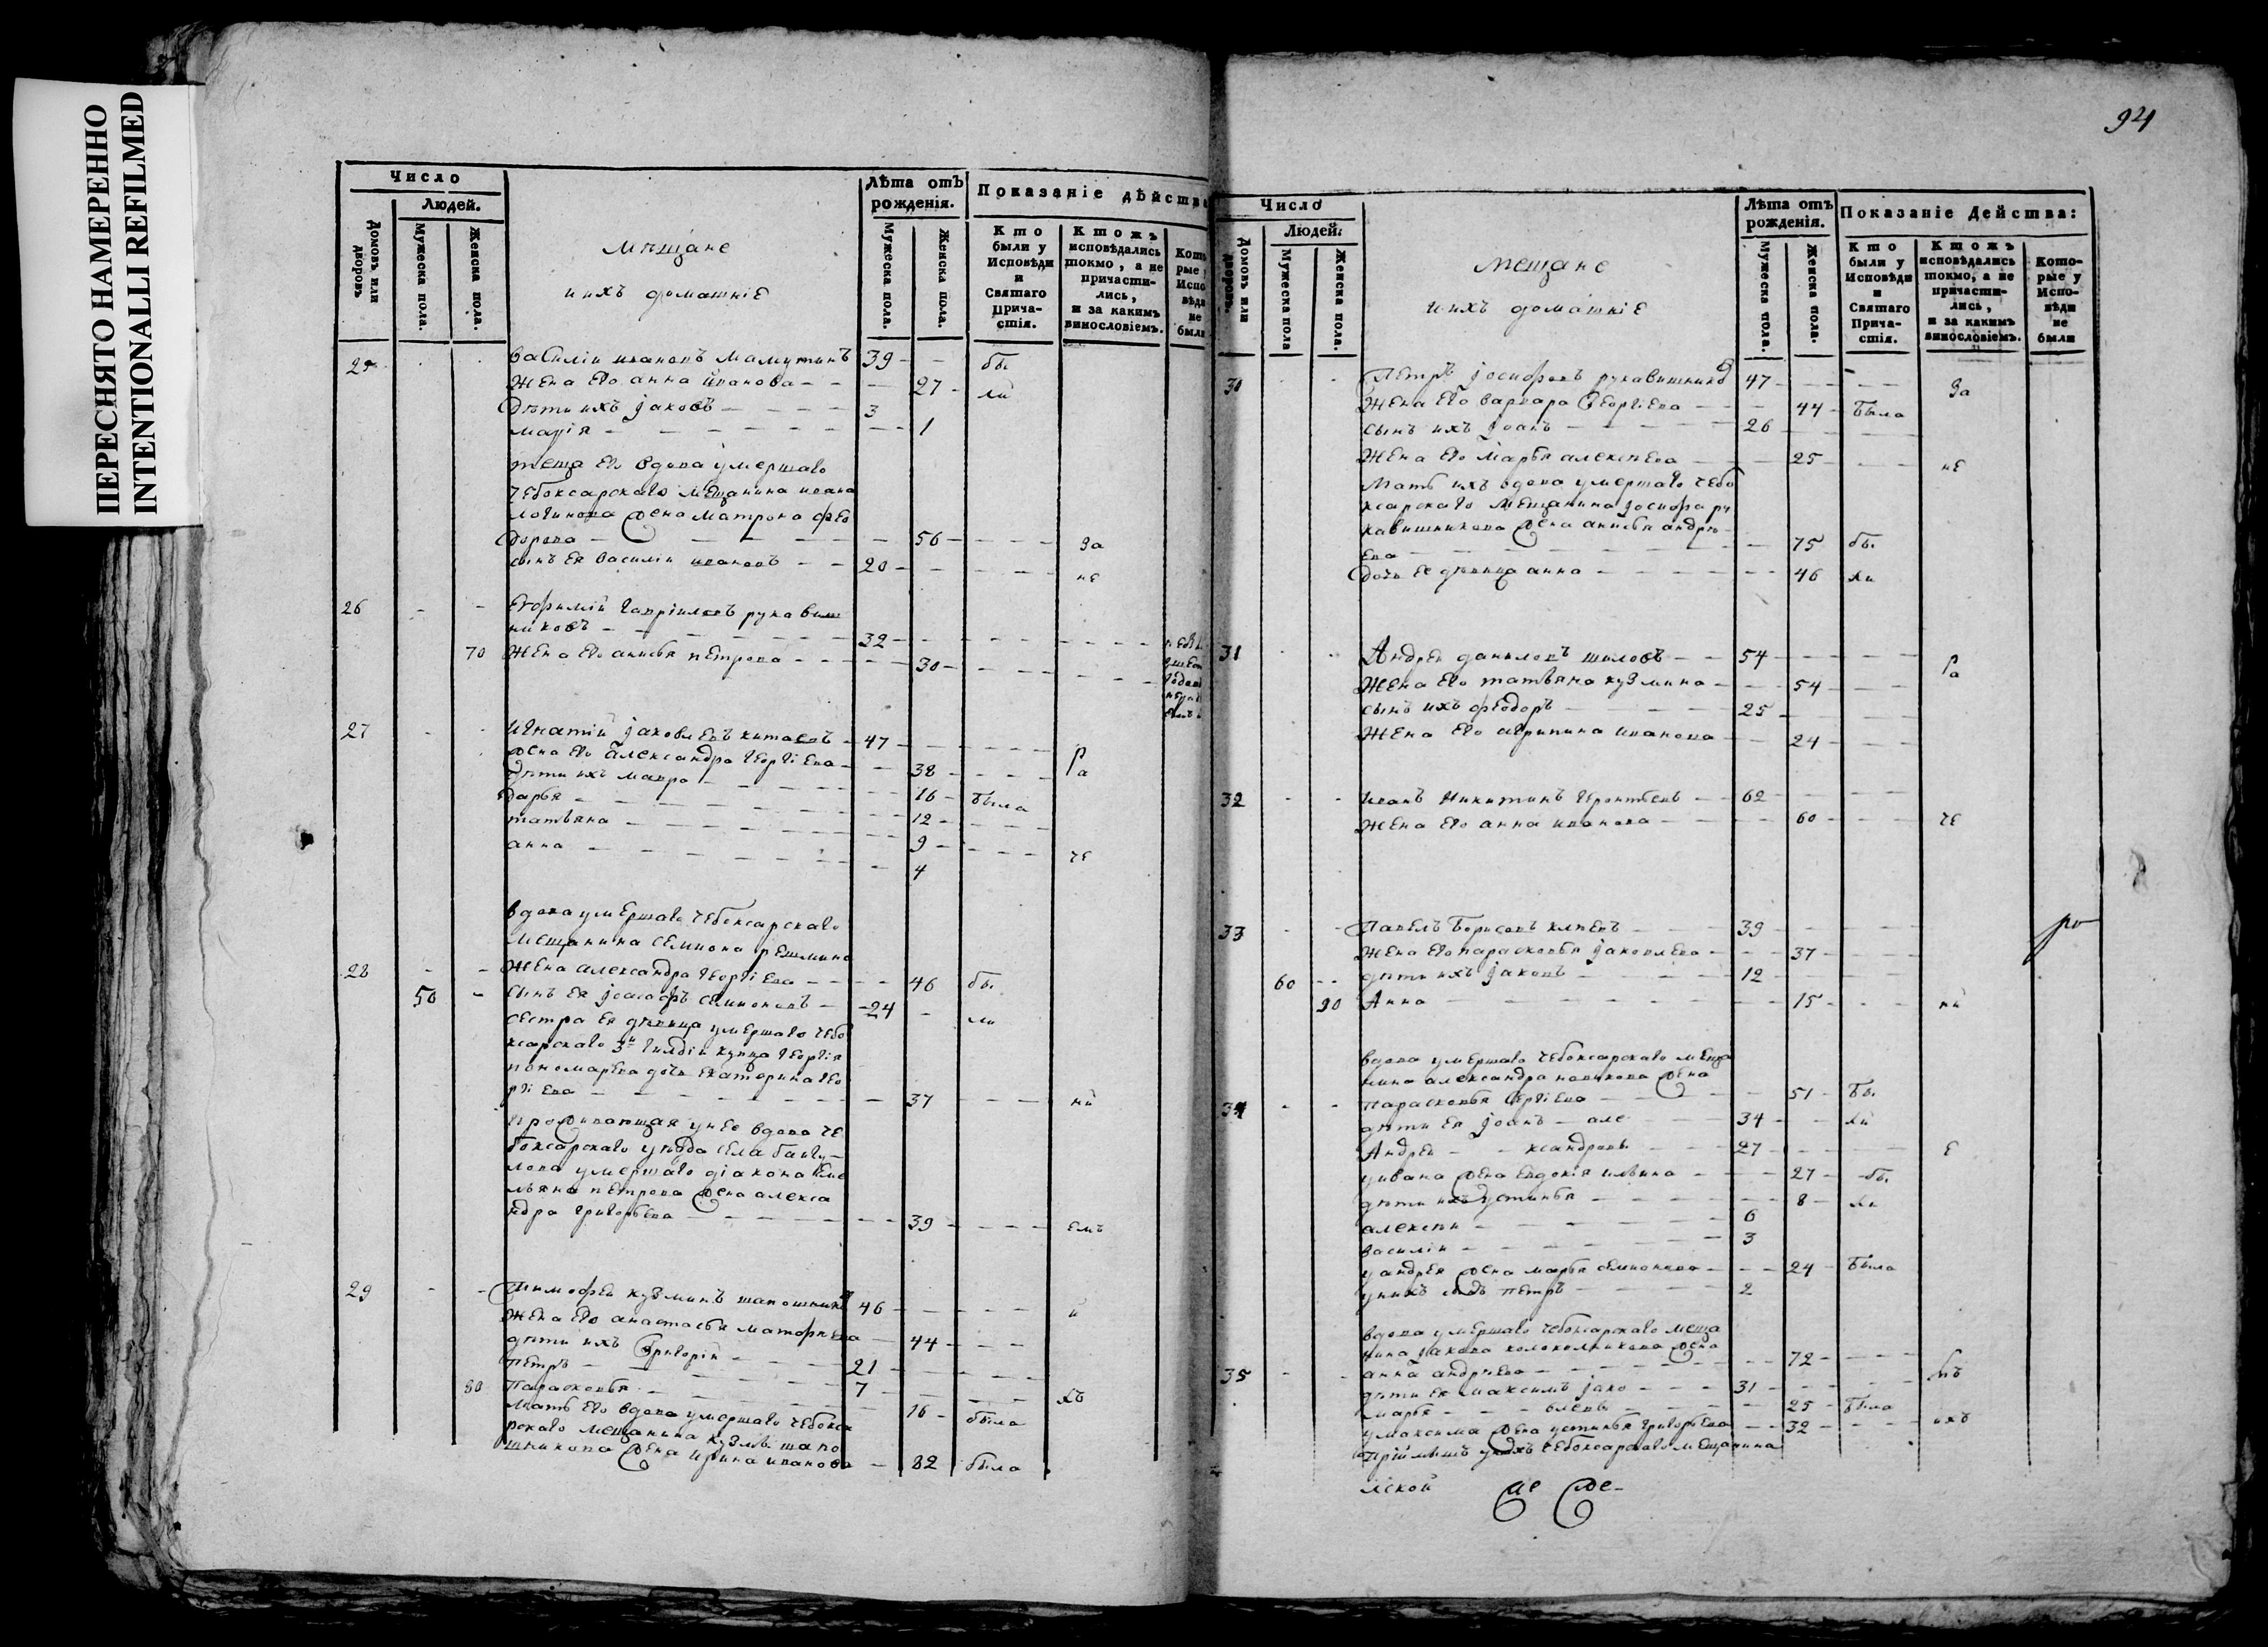 ПЕРЕСНЯТО НАМЕРЕННО
INTENTIONALLI REFILMED
Число
Людей.
Домовъ или дворовъ
Мужеска пола.
Женска пола.
Мѣщане
и ихъ домашніе
Лѣта отъ рожденія.
Мужеска пола.
Женска пола.
Показаніе дѣйства
Кто были у Исповѣди и Святаго Прича-стія.
Ктожъ исповѣдались токмо, а не причасти-лись, и за какимъ винословіемъ.
Кото рые Испо вѣди не были
Василіи Ивановъ Мамутинъ 39 - - бы
Жена его Анна Иванова - - - 27 - ли
Дѣти ихъ Іаковъ - - - - 3
Марія - - - - - - - - 1
теща его вдова умершаго
Чебоксарскаго мещанина Ивана
Логинова жена Матрона Фео
дорова - - - - - 56 - - - - За
сынъ ея Василіи Ивановъ - - 20 - - - - - не
26 - - Евфиміи Гавріиловъ рукавиш
никовъ - - - - - 32 - - - - -
70 Жена его Анисья Петрова - - - - 30 - - - -
27 - - Игнатіи Іаковлевъ Китаевъ - 47 - - - -
жена его Александра Георгіева - - 38 - - - - ра
Дѣти ихъ Мавра - - - - 16 - была
Дарья - - - - - 12 - - - -
Татьяна - - - - - 9 - - - -
Анна - - - - - 4 че
вдова умершаго Чебоксарскаго
мещанина Семиона
28 - - Жена Александра Георгіева - - - - 46 бы
50 - сынъ ея Іоасафъ Семионовъ - - 24 - ли
сестра ея дѣвица умершаго Чебо
ксарскаго 3й гилдіи купца Георгія
Пономарева дочь Екатерина Гео
ргіева - - - - - 37 - - - ни
Проживающая у нее вдова Че
боксарскаго уѣзда села
умершаго діакона Еме
льяна Петрова жена Алекса
ндра Григорьева - - - - - 39 - - - - емъ
29 - - Тимофеи Кузминъ Шапошникъ 46 - - - - и
Жена его Анастасья Матфѣева - 44 - - -
дѣти ихъ Григоріи - - - 21 - - - -
Петръ - - - - - 7 - - - -
80 Парасковья - - - - 16 - была хъ
Мать его вдова умершаго Чебокса
рскаго мещанина Кузмы Шапо
шникова жена Ирина Иванова - 82 была
94
Число
Людей.
Домовъ или дворовъ.
Мужеска пола
Женска пола.
Мещане
и ихъ домашніе
Лѣта отъ рожденія.
Мужеска пола.
Женска пола.
Показаніе Действа:
Кто были у Исповѣди и Святаго Прича-стія.
Ктожъ исповѣдались токмо, а не причасти-лись, и за какимъ винословіемъ.
Кото-рые у Испо-вѣди не были
30 - - Петръ Іосифовъ рукавишниковъ 47 - - - - За
Жена его Варвара Георгіева - - - 44 - была
сынъ ихъ Іоанъ - - - - - 26 - - -
Жена его Марья Алексеева - - 25 - - - - не
Мать ихъ вдова умершаго Чебо
ксарскаго мещанина Іосифа ру
кавишникова жена Анисья Андре-
ева - - - - - 75 бы
дочь ее дѣвица Анна - - - - - 46 ли
31 - - Андреи Даниловъ Шиловъ - - 54 - - - - ра
Жена его Татьяна Кузмина - - - 54 - - -
сынъ ихъ Феодоръ - - - - 25 - - -
Жена его Агрипина Иванова - - 24 - - -
32 - - Иванъ Никитинъ - - 62 - - - -
Жена его Анна Иванова - - - - 60 - - - че
33 - - Павелъ Борисовъ - - 39 - - - - ро
Жена его Парасковья Іаковлева - - 37 - - -
60 - - дѣти ихъ Іаковъ - - - - 12 - - -
90 Анна - - - - - 15 - - - ни
вдова умершаго Чебоксарскаго меща
нина Александра Новикова жена
34 - - Парасковья Сергіева - - - - 51 - Бы
дѣти ея Іоанъ - але - - 34 - - ли
Андреи - - ксандровы - - 27 - - - - е
у Ивана жена Евдокія Ильина - - - 27 - бы
дѣти ихъ Устинья - - - - 8 - ли
Алексеи - - - - - 6
Василіи - - - - - 3
у Андрея жена Марья Семионова - - - 24 - Была
у нихъ сынъ Петръ - - - - 2
вдова умершаго Чебоксарскаго меща
нина Іакова Колоколникова жена
35 - - Анна Андрѣева - - - - - 72 - - - -
дѣти ея Максимъ Іако - - - 31 - - - - нъ
Марья - - - влевы - - - 25 - Была
у Максима жена Устинья Григорьева - - 32 - - - - ихъ
Пріимышъ у нихъ Чебоксарскаго мещанина